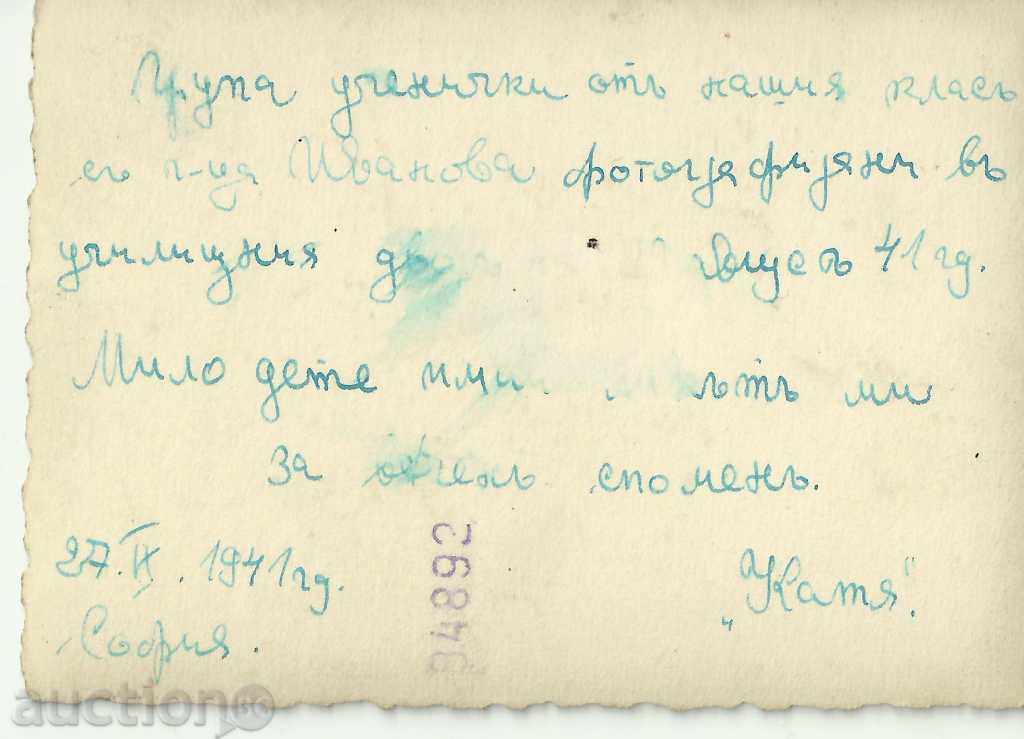 Група ученички отъ нашия класъ
съ г-ца Иванова фотографирани въ
училищния 41 гд.
Мило дете ми
за спомень.
27.IX.1941 гд.
„Катя".
София.
94892
auction BG